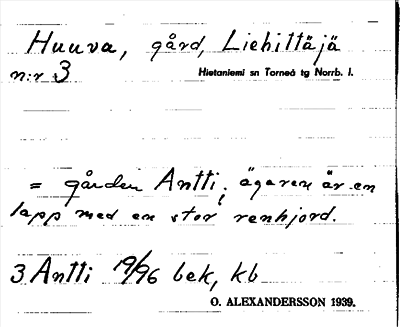 Huuva, gård, Liehittäjä
n:r 3 Hietaniemi sn Torneå tg Norrb. l.
= gården Antti; ägaren är en
lapp med en stor renhjord.
3 Antti 19/96 bek, kb
O. ALEXANDERSSON 1939.